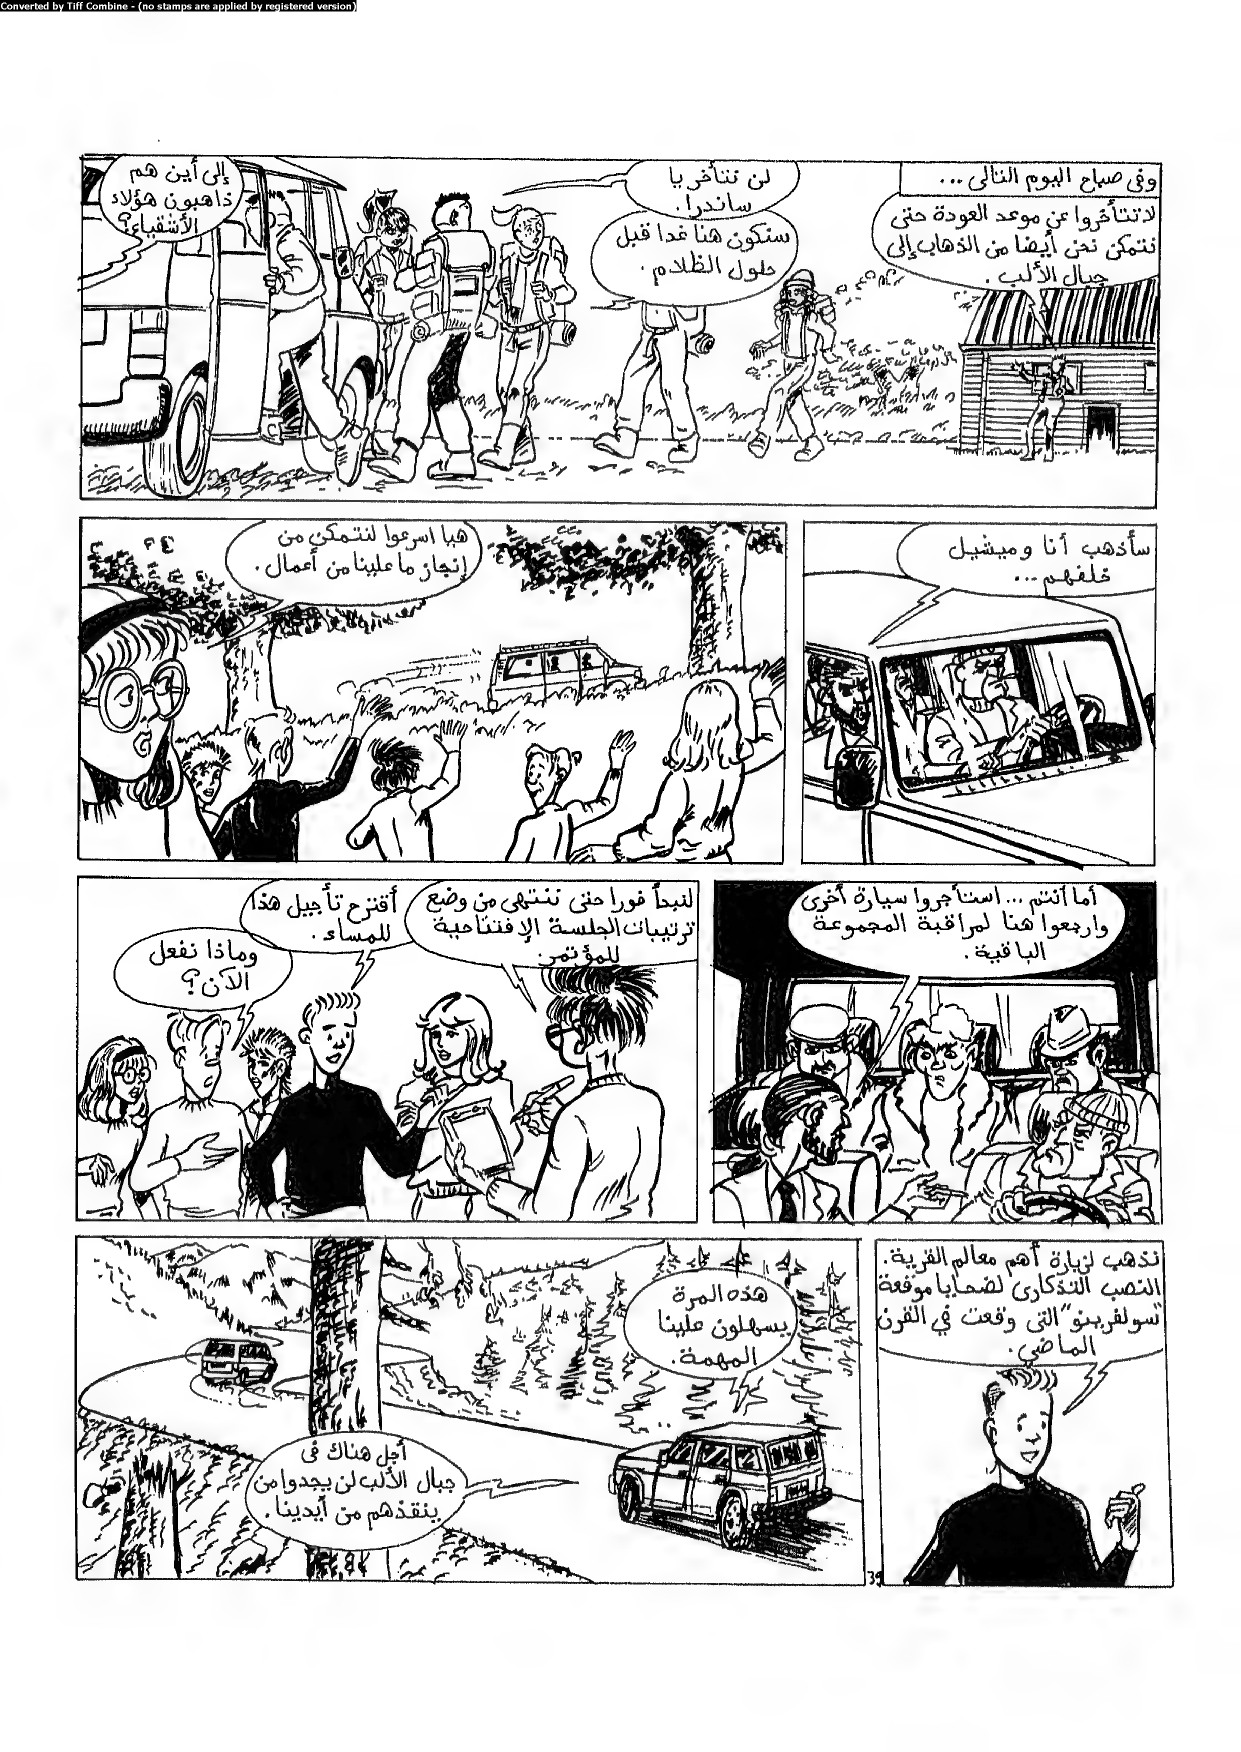 Converted by Tiff Combine - (no stamps are applied by registered version)
وفى صباح اليوم التالى ...
لاتتأخروا عن موعد العودة حتى
نتمكن نحن أيضا من الذهاب إلى
جبال الألب .
لن نتأخر يا
ساندرا .
سنكون هنا غدا قبل
حلول الظلام .
إلى أين هم
ذاهبون هؤلاء
الأشقياء؟
سأذهب أنا وميشيل
خلفهم ...
هيا اسرعوا لنتمكن من
إنجاز ما علينا من أعمال .
أما أنتم ... استأجروا سيارة أخرى
وارجعوا هنا لمراقبة المجموعة
الباقية .
لنبدأ فورا حتى ننتهى من وضع
ترتيبات الجلسة الإفتتاحية
للمؤتمر .
أقترح تأجيل هذا
للمساء .
وماذا نفعل
الآن؟
نذهب لزيارة أهم معالم القرية .
النصب التذكارى لضحايا موقعة
"سولفرينو" التى وقعت في القرن
الماضي .
هذه المرة
يسهلون علينا
المهمة .
أجل هناك فى
جبال الألب لن يجدوا من
ينقذهم من أيدينا .
39